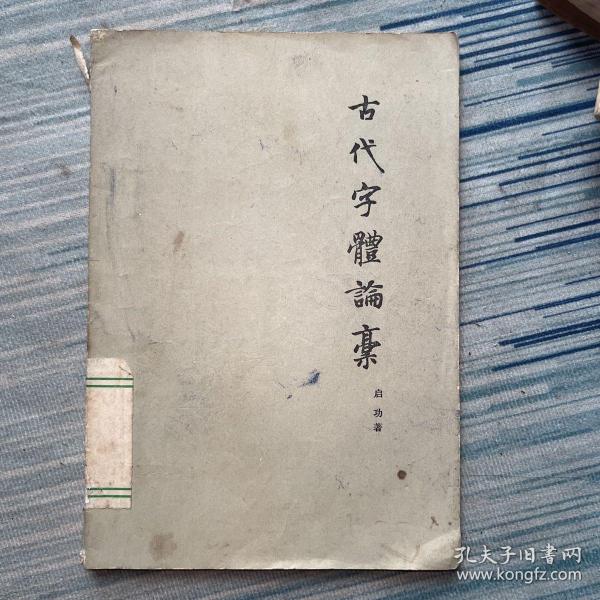 古代字體論稾
启功著
孔夫子旧书网
www.kongfz.com